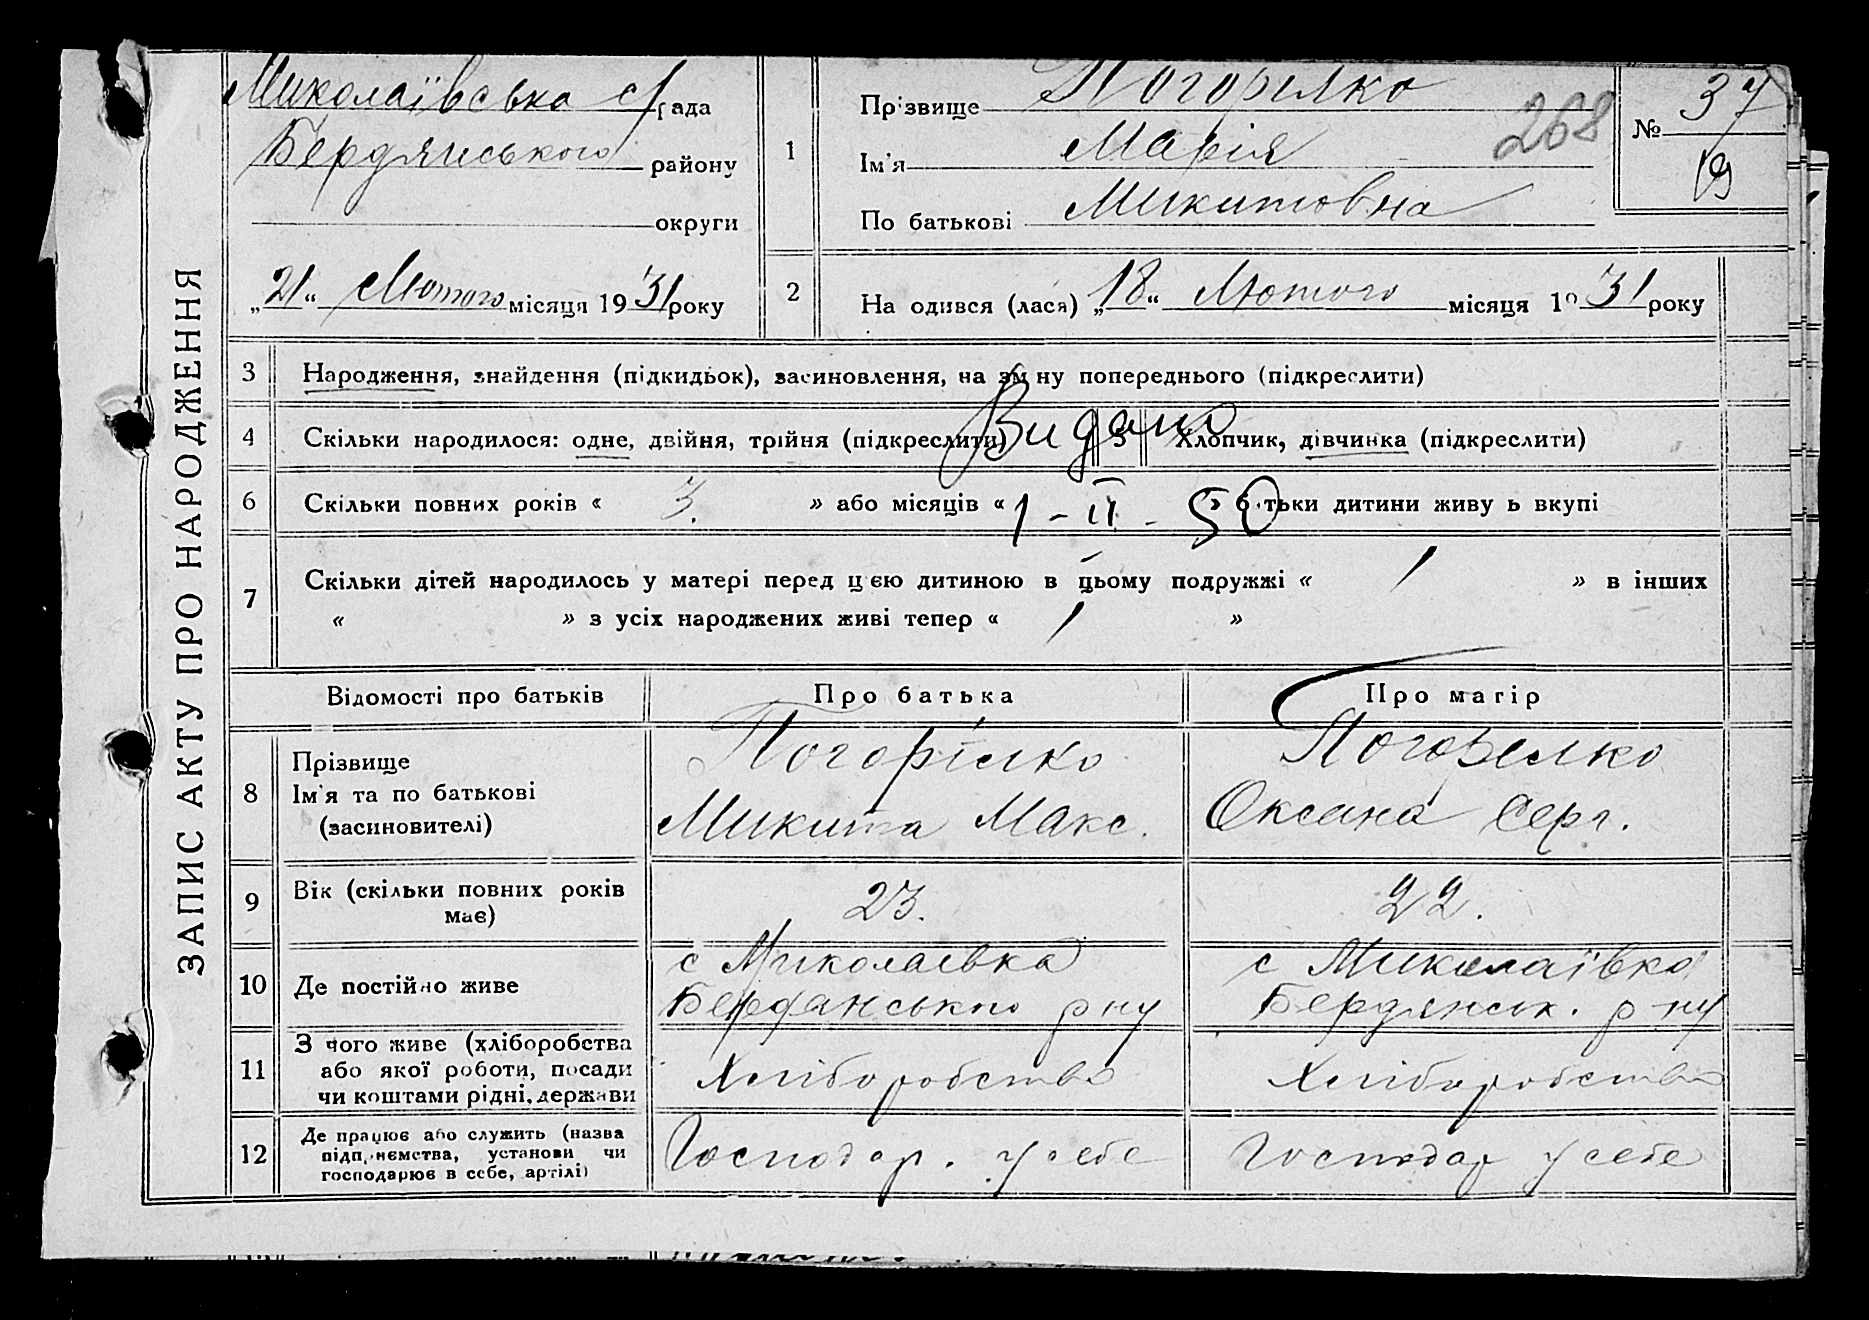 ЗАПИС АКТУ ПРО НАРОДЖЕННЯ
Миколаївська с/рада
Бердянського району
округи
„21“ Лютого місяця 1931 року
1
Прізвище Погорілко
Ім'я Марія
По батькові Микитовна
268
№ 37
19
2
На одився (лася) „18“ Лютого місяця 19 31 року
3 Народження, знайдення (підкидьок), засиновлення, на зм ну попереднього (підкреслити)
4 Скільки народилося: одне, двійня, трійня (підкреслити) 5 Хлопчик, дівчинка (підкреслити)
Видано
6 Скільки повних років « 3. » або місяців « » б тьки дитини живу ь вкупі
1 - II - 50
7 Скільки дітей народилось у матері перед цією дитиною в цьому подружжі « 1 » в інших
« » з усіх народжених живі тепер « 1 »
Відомості про батьків Про батька Про матір
8 Прізвище
Ім'я та по батькові
(засиновителі)
Погорілко
Микита Макс.
Погорелко
Оксана Серг.
9 Вік (скільки повних років
має)
23. 22.
10 Де постійно живе
с Миколаевка
Бердянського р ну
с Миколаївка
Бердянськ. р-ну
11 З чого живе (хліборобства
або якої роботи, посади
чи коштами рідні, держави
Хліборобство Хліборобство
12 Де працює або служить (назва
підп.иємства, установи чи
господарює в себе, артілі)
Господар. у себе Господар у себе